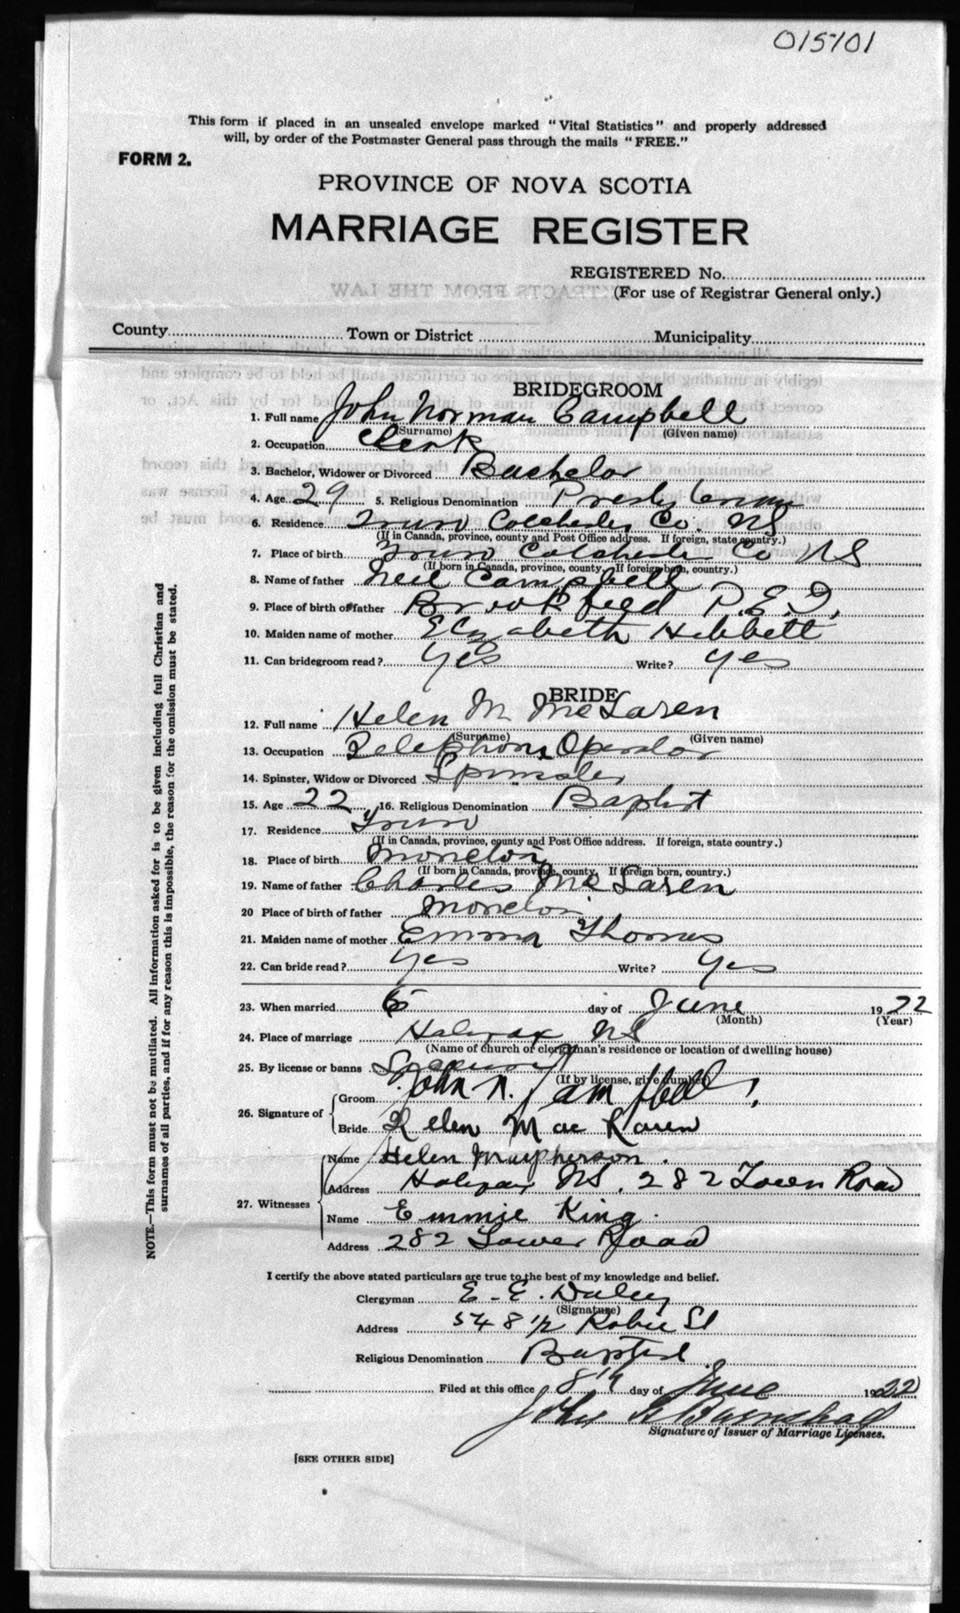 015701
This form if placed in an unsealed envelope marked "Vital Statistics" and properly addressed
will, by order of the Postmaster General pass through the mails "FREE."
FORM 2.
PROVINCE OF NOVA SCOTIA
MARRIAGE REGISTER
REGISTERED No.
(For use of Registrar General only.)
County Town or District Municipality
BRIDEGROOM
1. Full name John Norman Campbell
(Surname) (Given name)
2. Occupation Clerk
3. Bachelor, Widower or Divorced Bachelor
4. Age 29 5. Religious Denomination Presbyterian
6. Residence Truro Colchester Co. NS
(If in Canada, province, county and Post Office address. If foreign, state country.)
7. Place of birth Truro Colchester Co NS
(If born in Canada, province, county. If foreign born, country.)
8. Name of father Neil Campbell
9. Place of birth of father Brookfield P.E.I.
10. Maiden name of mother Elizabeth Hibbett
11. Can bridegroom read? Yes Write? yes
BRIDE
12. Full name Helen M McLaren
(Surname) (Given name)
13. Occupation Telephone Operator
14. Spinster, Widow or Divorced Spinster
15. Age 22 16. Religious Denomination Baptist
17. Residence Truro
(If in Canada, province, county and Post Office address. If foreign, state country.)
18. Place of birth Moncton
(If born in Canada, province, county. If foreign born, country.)
19. Name of father Charles McLaren
20 Place of birth of father Moncton
21. Maiden name of mother Emma Thomas
22. Can bride read? Yes Write? Yes
23. When married day of June 1922
(Month) (Year)
24. Place of marriage Halifax NS
(Name of church of clergyman's residence or location of dwelling house)
25. By license or banns
(If by license, give number)
26. Signature of Groom John N. Campbell
Bride Helen MacLaren
27. Witnesses Name Helen Macpherson
Address Halifax NS. 282 Tower Road
Name Emmie King
Address 282 Tower Road
I certify the above stated particulars are true to the best of my knowledge and belief.
Clergyman E. E. Daley
(Signature)
Address 548 1/2 Robie St
Religious Denomination Baptist
Filed at this office 8th day of June 1922
John
Signature of Issuer of Marriage Licenses.
[SEE OTHER SIDE]
NOTE.—This form must not be mutilated. All information asked for is to be given including full Christian and
surnames of all parties, and if for any reason this is impossible, the reason for the omission must be stated.